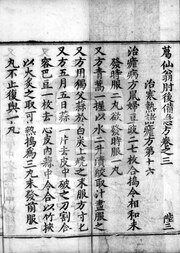 葛仙翁肘後備急方卷之三 陛三
治寒熱諸瘧方第十六
治瘧病方鼠婦豆豉二七枚合搗令相和未
發時服二丸欲發時服一丸
又方青蒿一握以水二升漬絞取汁盡服之
又方用獨父蒜於白炭上燒之末服方寸匕
又方五月五日蒜一片去皮中破之刀割合
容巴豆一枚去心皮內蒜中令合以竹挾
以火炙之取可熱搗為三丸未發前服一
丸不止復與一丸